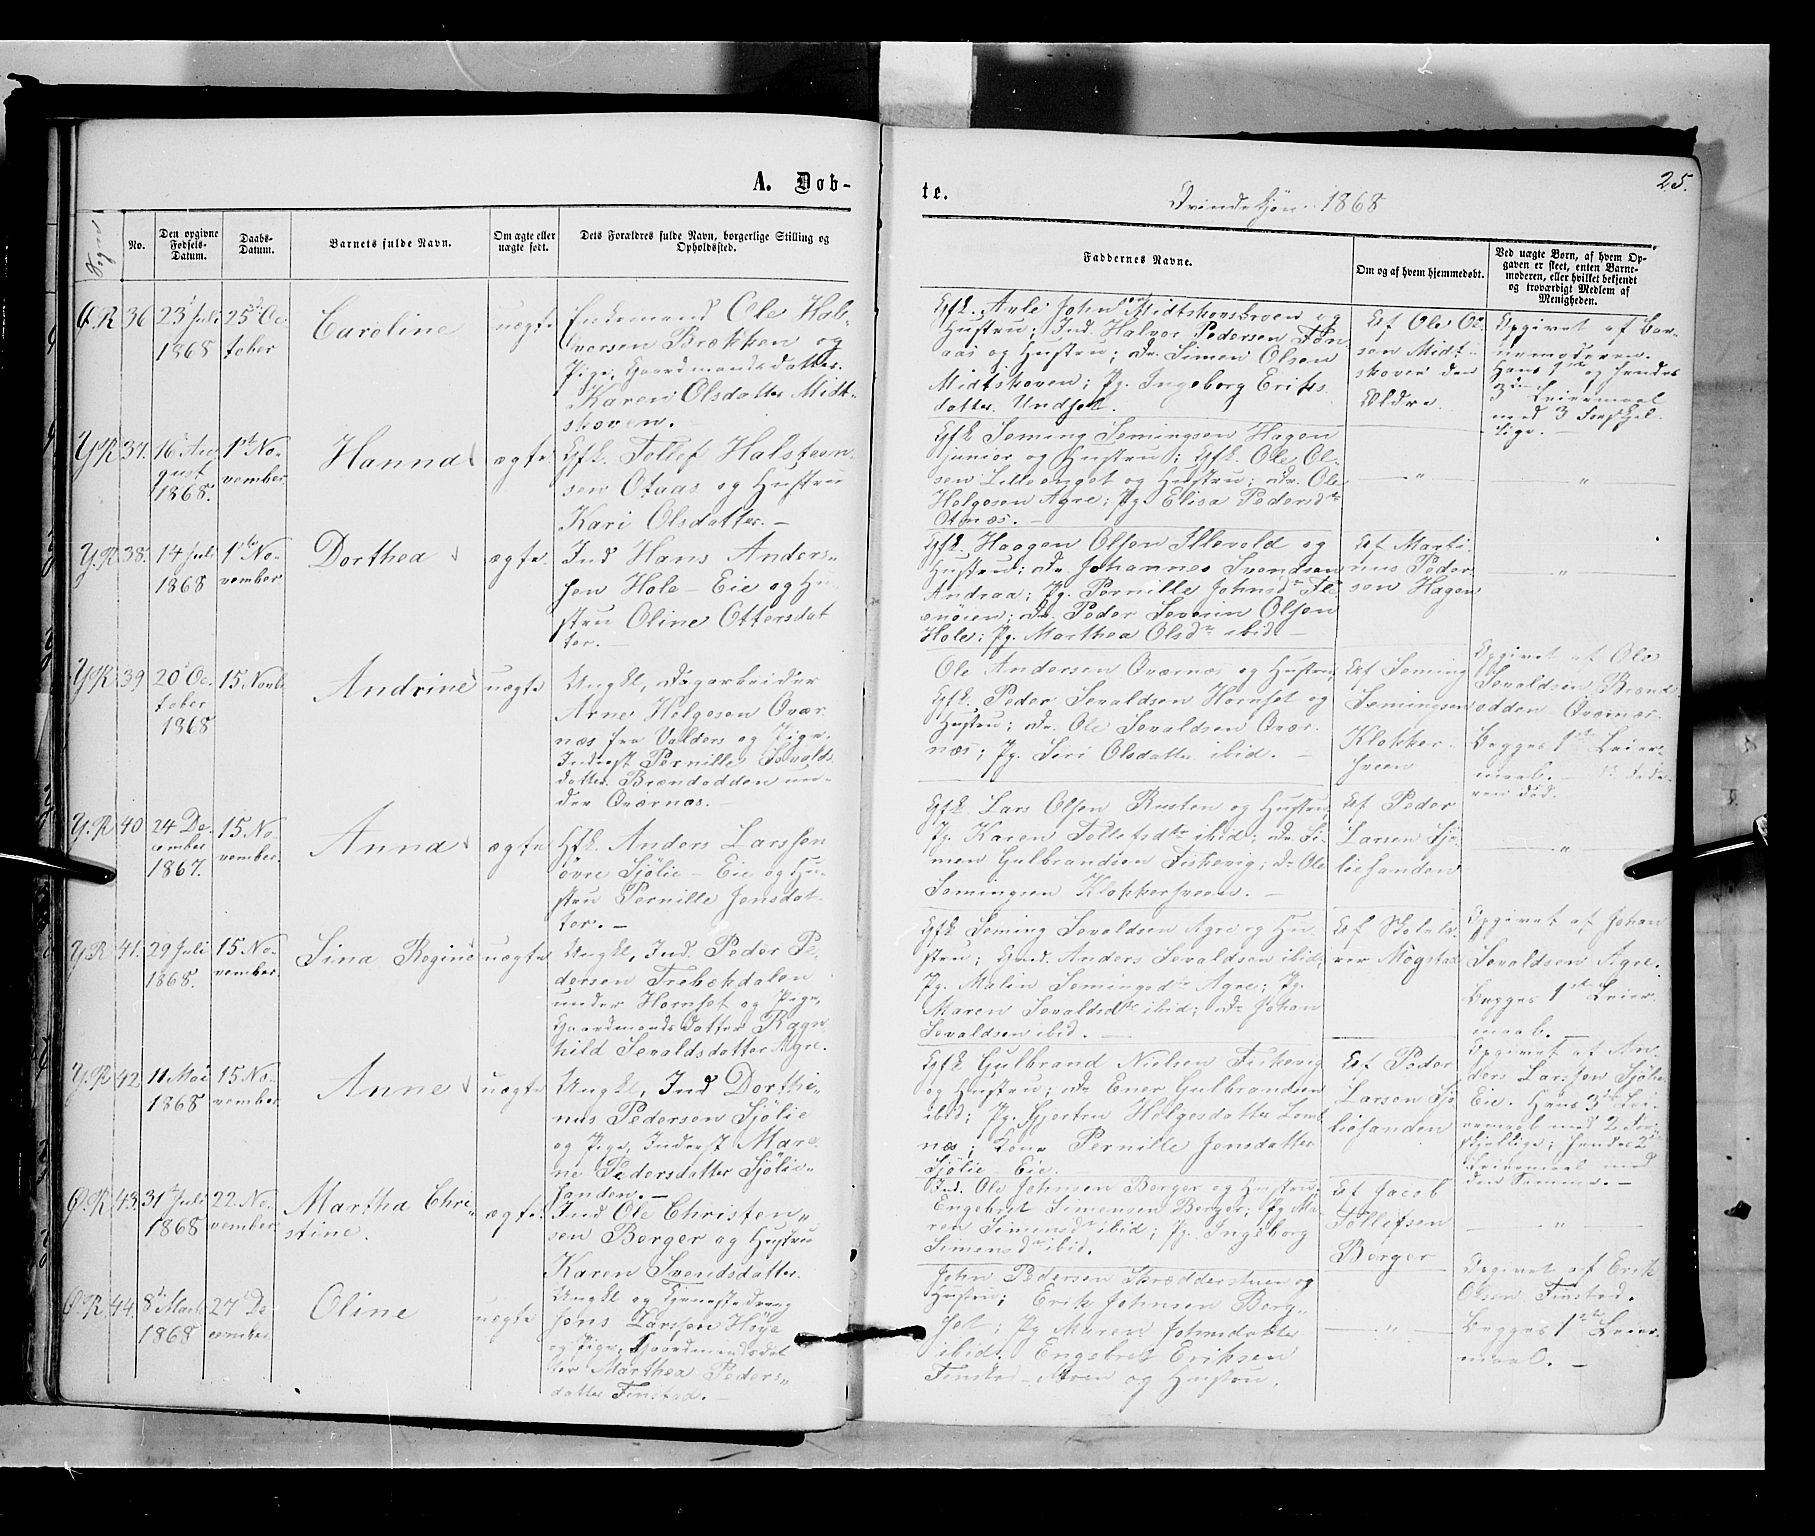 A. Døb-
te.
Qvindekjøn 1868
25.
Sogn
No.
Den opgivne Fødsels-Datum.
Daabs-Datum.
Barnets fulde Navn.
Om ægte eller uægte født.
Dets Forældres fulde Navn, borgerlige Stilling og Opholdssted.
Faddernes Navne.
Om og af hvem hjemmedøbt.
Ved uægte Børn, af hvem Op-
gaven er skeet, enten Barne-
moderen, eller hvilket bekjendt
og troværdigt Medlem af
Menigheden.
Ø R 36
23 Juli
1868
25 Oc
tober
Caroline
uægte
Enkemand Ole Hal-
vorsen Brækken og
Pige, Gaardmandsdatter
Karen Olsdatter Midt-
skoven.
Gfk. John Midtskovsbroen og
Hustru; Ind Halvor Pedersen
aas og Hustru; Dr. Simen Olsen
Midtskoven; Pg. Ingeborg Eriks
datter Undset.
Af Ole Ol-
sen Midt-
skoven den
Ældre
Opgivet af Bar-
nemoderen.
Hans 1ste og hendes
3die Leiermaal
med 3 Forskjel-
lige.
Y R 37.
16 Au
gust
1868.
1ste No-
vember
Hanna
ægte
Gfk. Tollef Halsteen-
sen Otnæs og Hustru
Kari Olsdatter. —
Gfk Seming Semingsen Hagen
junior og Hustru; Gfk. Ole Ol-
sen Lilleenget og Hustru; Dr. Ole
Helgesen Agre; Pg Elisa Pedersdtr
Otnæs. —
— " —
— " —
Y. R 38.
14 Juli
1868
1ste No-
vember
Dorthea
ægte
Ind Hans Anders-
sen Hole-Eie og Hu-
stru Oline Ottersdat
ter. —
Gfk. Haagen Olsen Illevold og
Hustru; Dr. Johannes Svendsen
Andraa; Pg. Pernille Johnsdtr
Dr. Peder Severin Olsen
Hole; Pg. Marthea Olsdtr ibid. —
Af Marti-
nus Peder
sen Hagen
— " —
Y R 39
20 Oc
tober
1868
15 Novbr
Andrine
uægte
Ungkl, Dagarbeider
Arne Helgesen Qvær
næs fra Valders og Pige,
Inderst Pernille Sevalds
datter Brændodden un-
der Qværnæs. —
Ole Andersen Qværnæs og Hustru
Gfk. Peder Sevaldsen Hornset og
Hustru; Dr. Ole Sevaldsen Qvær
næs; Pg. Seri Olsdatter ibid. —
Af Seming
Semingsen
Klokker-
sveen
Opgivet af Ole
Sevaldsen Brænd
odden Qværnæs.
Begges 1ste Leier
maal. —
ren død.
Y. R 40
24 De
cember
1867.
15. No-
vember
Anna
ægte
Gfk. Anders Larssen
øvre Sjølie-Eie og Hu-
stru Pernille Jensdat
ter. —
Gfk. Lars Olsen Rusten og Hustru
Pg. Karen Tollefsdtr ibid; Dr. Si-
men Gulbrandsen Fiskevig; Dr Ole
Semingsen Klokkersveen. —
Af Peder
Larsen Sjø-
liesanden
— " —
Y R 41.
29 Juli
1868.
15 No-
vember
Sina Regine
uægte
Ungkl, Ind. Peder Pe-
dersen Trebækdalen
under Hornset og Pige,
Gaardmandsdatter Ragn
hild Sevaldsdatter Agre.
Gfk Seming Sevaldsen Agre og Hu-
stru; Gmd. Anders Sevaldsen ibid;
Pg. Malin Semingsdtr Agre; Pg.
Maren Sevaldsdtr ibid; Dr Johan
Sevaldsen ibid. —
Af Skolelæ-
rer Mogstad
Opgivet af Johan
Sevaldsen Agre.
Begges 1ste Leier
maal. —
Y. R 42
11 Mai
1868
15 No-
vember
Anne
uægte
Ungkl, Ind Dorthi-
nus Pedersen Sjølie
og Pige, Inderst Mare-
ne Pedersdatter Sjølie-
sanden. —
Gfk Gulbrand Nielsen Fiskevig
og Hustru; Dr Ener Gulbrandsen
ibid; Pg. Kjerten Helgesdatter Lomb
næs; Kone Pernille Jensdatter
Sjølie-Eie.
Af Peder
Larsen Sjø
liesanden
Opgivet af An-
ders Larssen Sjølie
Eie. Hans 3die Lei-
ermaal med 2 For
skjellige; hendes 2det
Leiermaal med
den Samme. —
Ø. R 43.
31 Juli
1868
22 No-
vember
Martha Chri-
stine.
ægte
Ind Ole Christen-
sen Berger og Hustru
Karen Svendsdatter.
Ind. Ole Johnsen Berger og Hustru;
Engebret Simensen Berger; Pg Ma-
ren Simensdtr ibid; Pg. Ingeborg
Simensdtr ibid.
Af Jacob
Tollefsen
Berger
— " —
Ø R 44.
8 Marts
1868
27 De-
cember
Oline
uægte
Ungkl og Tjenestedreng
Jens Larssen Høye
og Pige, Gaardmandsdat
ter Marthea Peders-
datter Finstad. —
John Pedersen Skrædderstuen og
Hustru; Erik Johnsen Berg-
set; Pg Maren Johnsdatter
ibid. Engebret Eriksen
Finstad-Moen og Hustru.
— " —
Opgivet af Erik
Olsen Finstad.
Begges 1ste Leier
maal. —